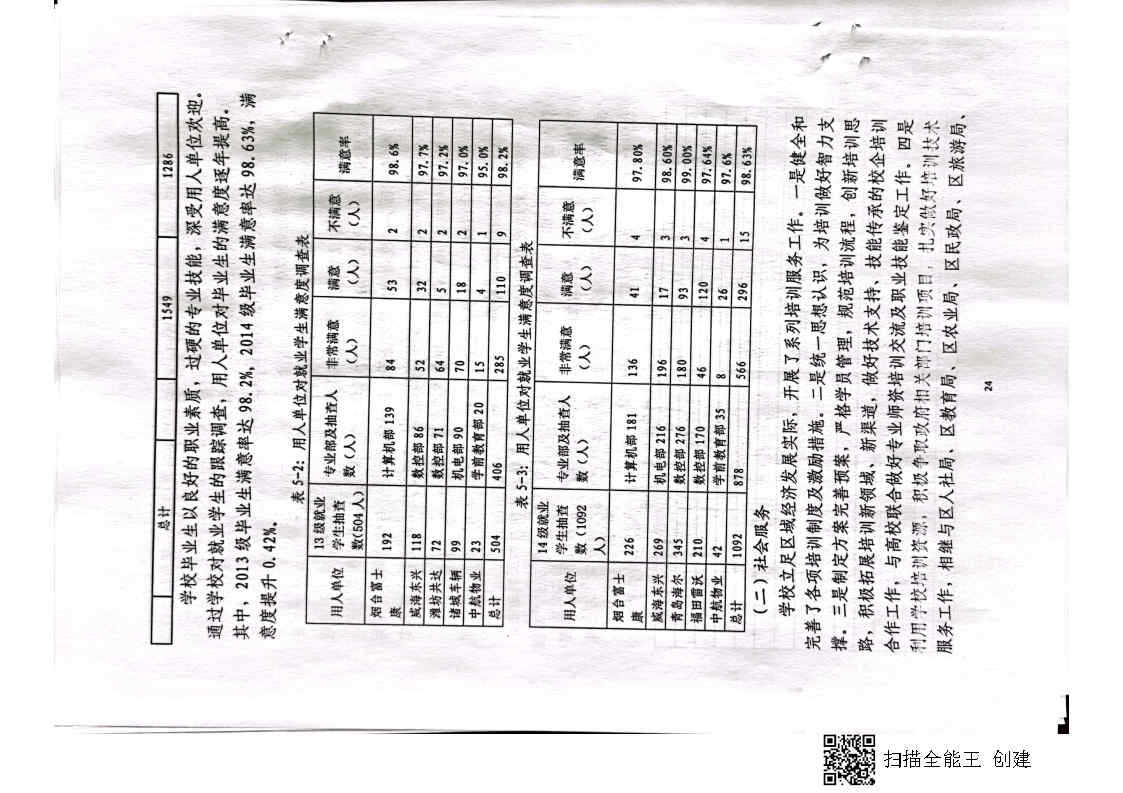 总计 1549 1286
学校毕业生以良好的职业素质，过硬的专业技能，深受用人单位欢迎。
通过学校对就业学生的跟踪调查，用人单位对毕业生的满意度逐年提高。
其中，2013级毕业生满意率达98.2%，2014级毕业生满意率达98.63%，满
意度提升0.42%。
表5-2：用人单位对就业学生满意度调查表
用人单位 13级就业学生抽查数(504人) 专业部及抽查人数（人） 非常满意（人） 满意（人） 不满意（人） 满意率
烟台富士康 192 计算机部139 84 53 2 98.6%
威海东兴 118 数控部86 52 32 2 97.7%
潍坊共达 72 数控部71 64 5 2 97.2%
诸城车辆 99 机电部90 70 18 2 97.0%
中航物业 23 学前教育部20 15 4 1 95.0%
总计 504 406 285 110 9 98.2%
表5-3：用人单位对就业学生满意度调查表
用人单位 14级就业学生抽查数（1092人） 专业部及抽查人数（人） 非常满意（人） 满意（人） 不满意（人） 满意率
烟台富士康 226 计算机部181 136 41 4 97.80%
威海东兴 269 机电部216 196 17 3 98.60%
青岛海尔 345 数控部276 180 93 3 99.00%
福田雷沃 210 数控部170 46 120 4 97.64%
中航物业 42 学前教育部35 8 26 1 97.6%
总计 1092 878 566 296 15 98.63%
（二）社会服务
学校立足区域经济发展实际，开展了系列培训服务工作。一是健全和
完善了各项培训制度及激励措施。二是统一思想认识，为培训做好智力支
撑。三是制定方案完善预案，严格学员管理，规范培训流程，创新培训思
路，积极拓展培训新领域、新渠道，做好技术支持、技能传承的校企培训
合作工作，与高校联合做好专业师资培训交流及职业技能鉴定工作。四是
利用学校培训资源，积极争取政府相关部门培训项目，扎实做好培训技术
服务工作，相继与区人社局、区教育局、区农业局、区民政局、区旅游局、
24
扫描全能王 创建